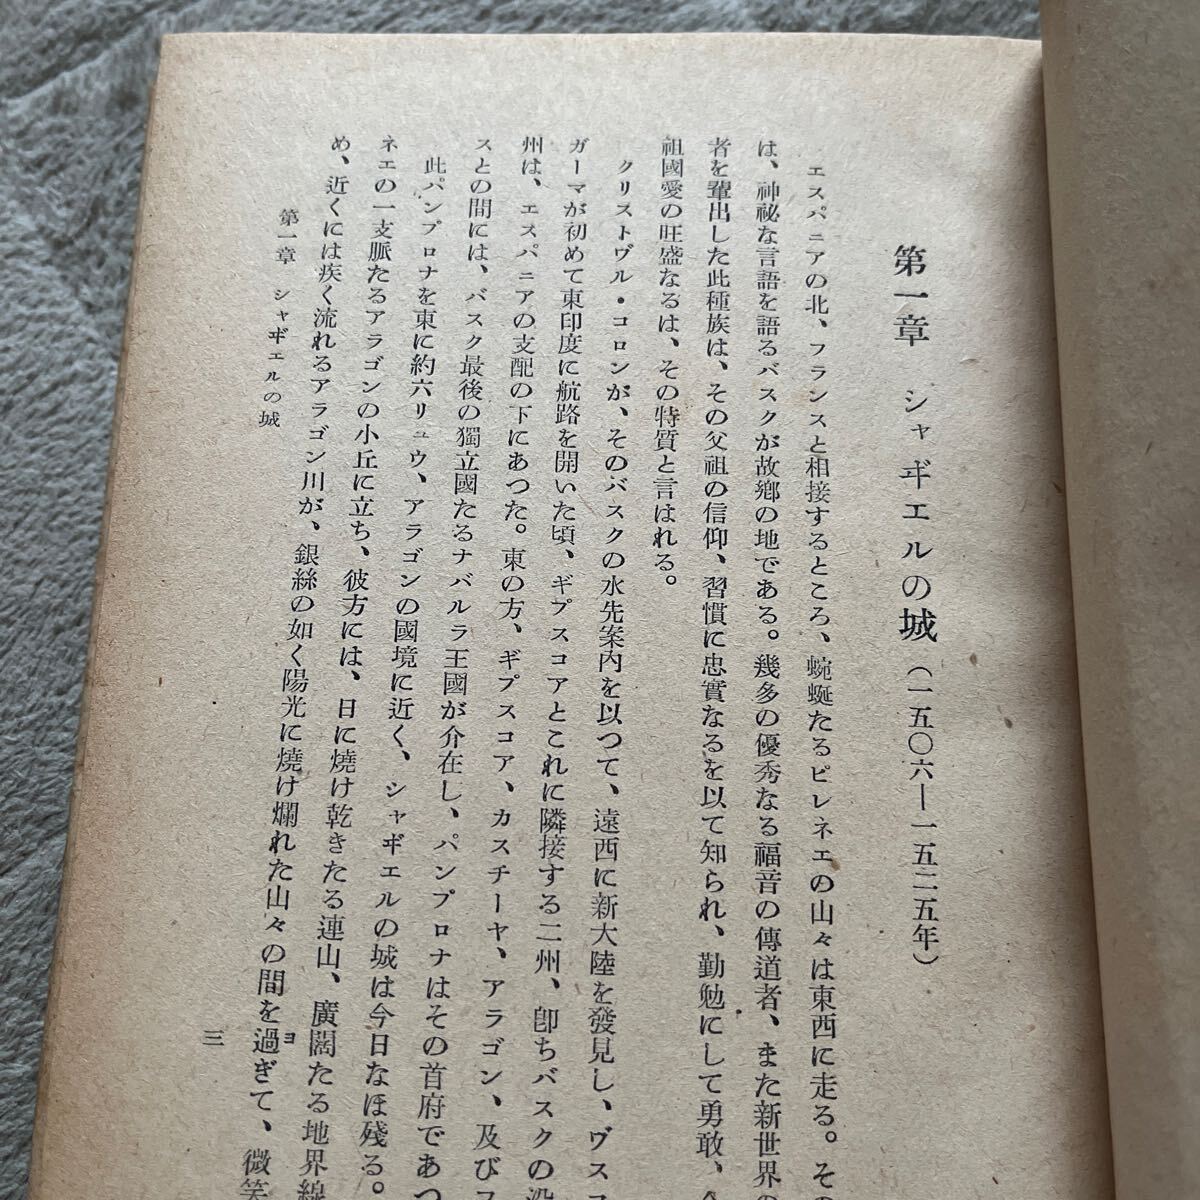 第一章　シャヸエルの城（一五〇六―一五二五年）
エスパニアの北、フランスと相接するところ、蜿蜒たるピレネエの山々は東西に走る。その
は、神祕な言語を語るバスクが故鄕の地である。幾多の優秀なる福音の傳道者、また新世界の
者を輩出した此種族は、その父祖の信仰、習慣に忠實なるを以て知られ、勤勉にして勇敢、
祖國愛の旺盛なるは、その特質と言はれる。
クリストヴル・コロンが、そのバスクの水先案內を以つて、遠西に新大陸を發見し、ヴス
ガーマが初めて東印度に航路を開いた頃、ギプスコアとこれに隣接する二州、卽ちバスクの
州は、エスパニアの支配の下にあつた。東の方、ギプスコア、カスチーヤ、アラゴン、及び
スとの間には、バスク最後の獨立國たるナバルラ王國が介在し、パンプロナはその首府であつ
此パンプロナを東に約六リュウ、アラゴンの國境に近く、シャヸエルの城は今日なほ殘る。
ネエの一支脈たるアラゴンの小丘に立ち、彼方には、日に燒け乾きたる連山、廣闊たる地界線
め、近くには疾く流れるアラゴン川が、銀絲の如く陽光に燒け爛れた山々の間を過ぎて、微笑
ヨ
第一章　シャヸエルの城
三